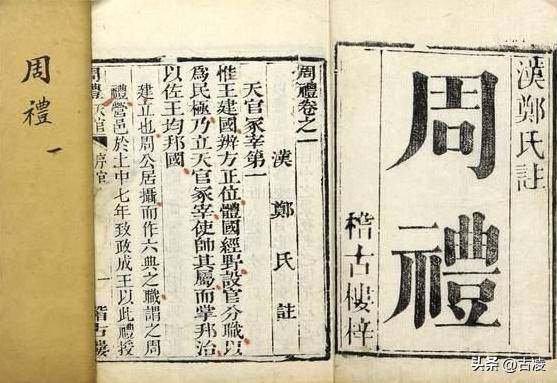 漢鄭氏註
周禮
稽古樓梓
周禮卷之一
漢鄭氏註
天官冢宰第一
惟王建國辨方正位體國經野設官分職以
為民極乃立天官冢宰使帥其屬而掌邦治
以佐王均邦國
建立也周公居攝而作六典之職謂之周
禮營邑於土中七年致政成王以此禮授
周禮 天官 序官 一 稽古樓
周禮 一
头条 @古凌